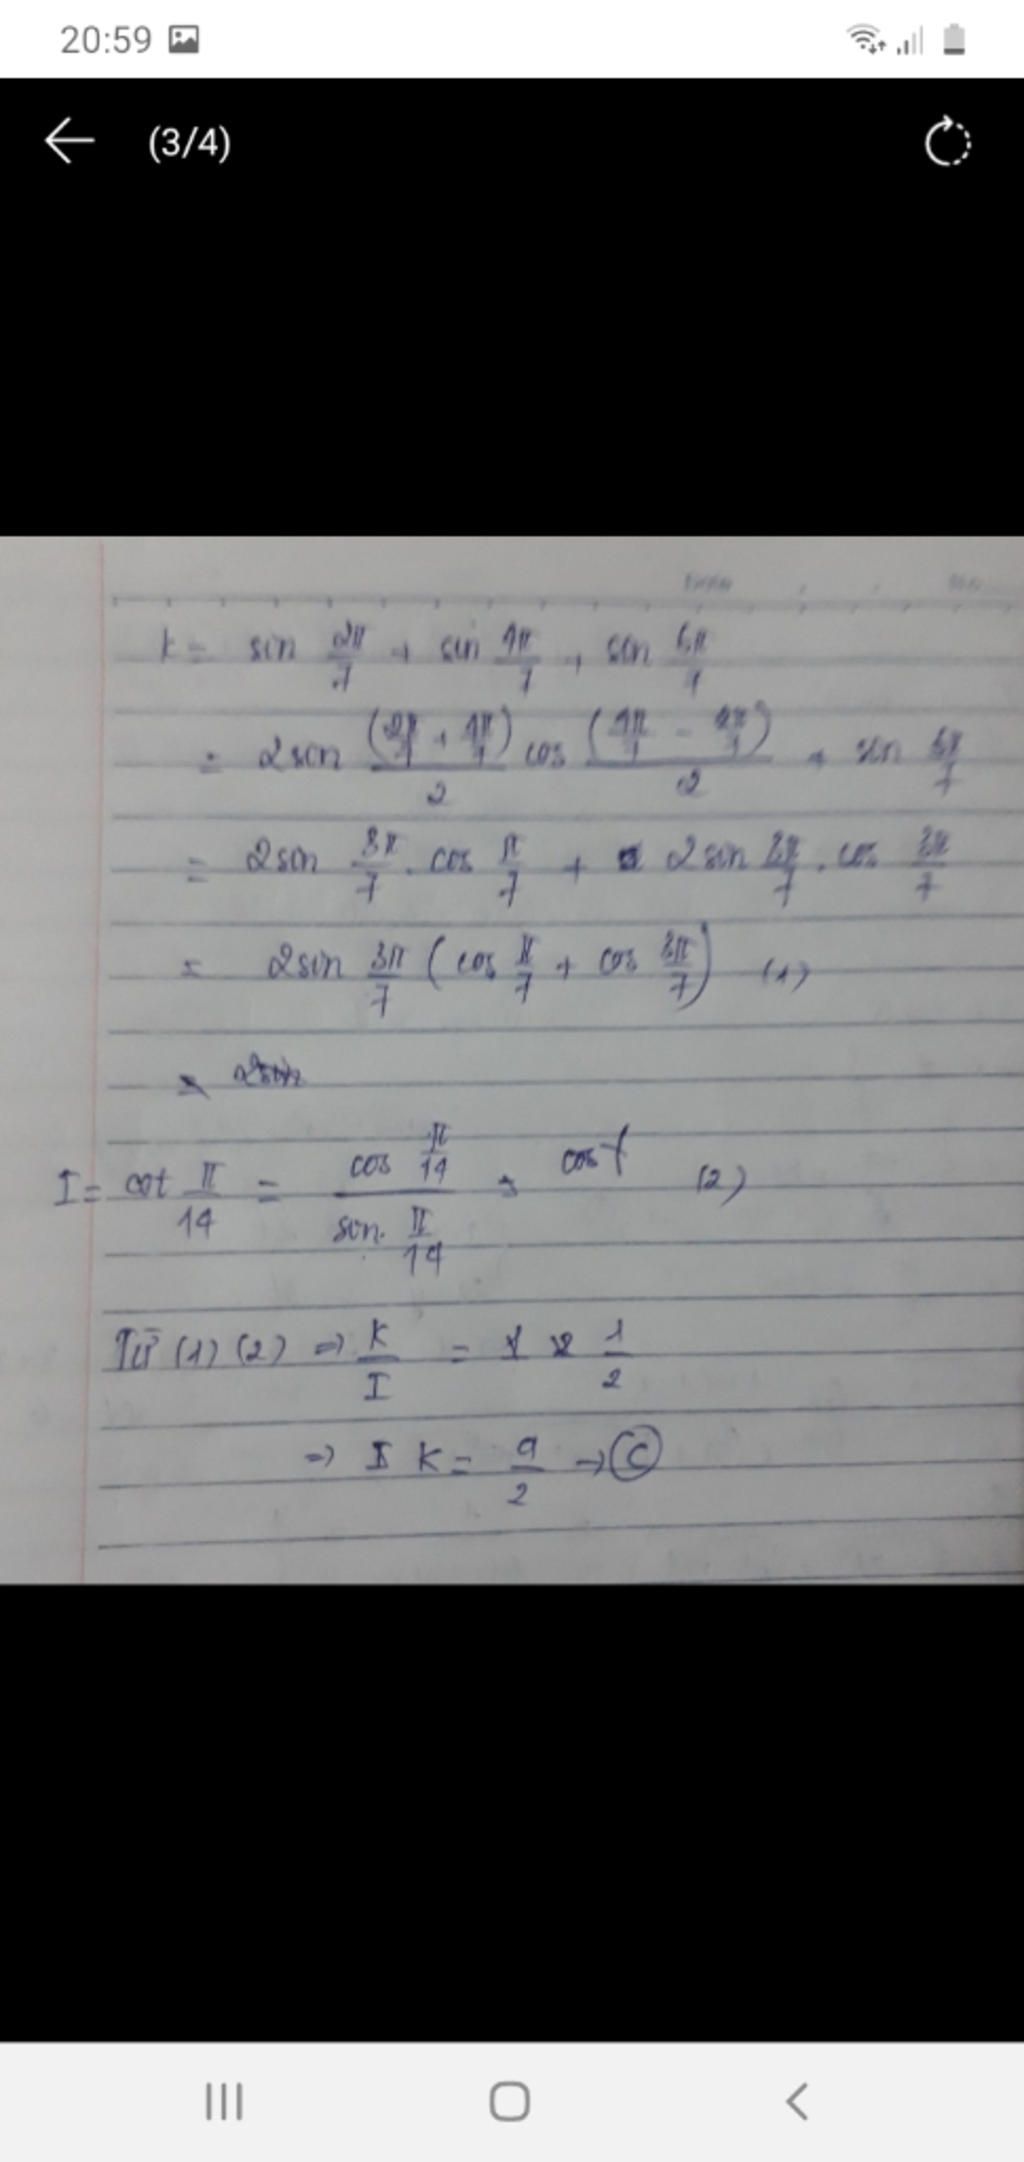 20:59
(3/4)
K = sin 2π/7 + sin 4π/7 + sin 6π/7
= 2sin (2π/7 + 4π/7)/2 cos (4π/7 - 2π/7)/2 + sin 6π/7
= 2sin 3π/7 . cos π/7 + 2sin 3π/7 . cos 3π/7
= 2sin 3π/7 (cos π/7 + cos 3π/7) (1)
I = cot π/14 = cos π/14 / sin π/14 = (2)
Từ (1) (2) => K/I = 1/2
=> K = a/2 → C